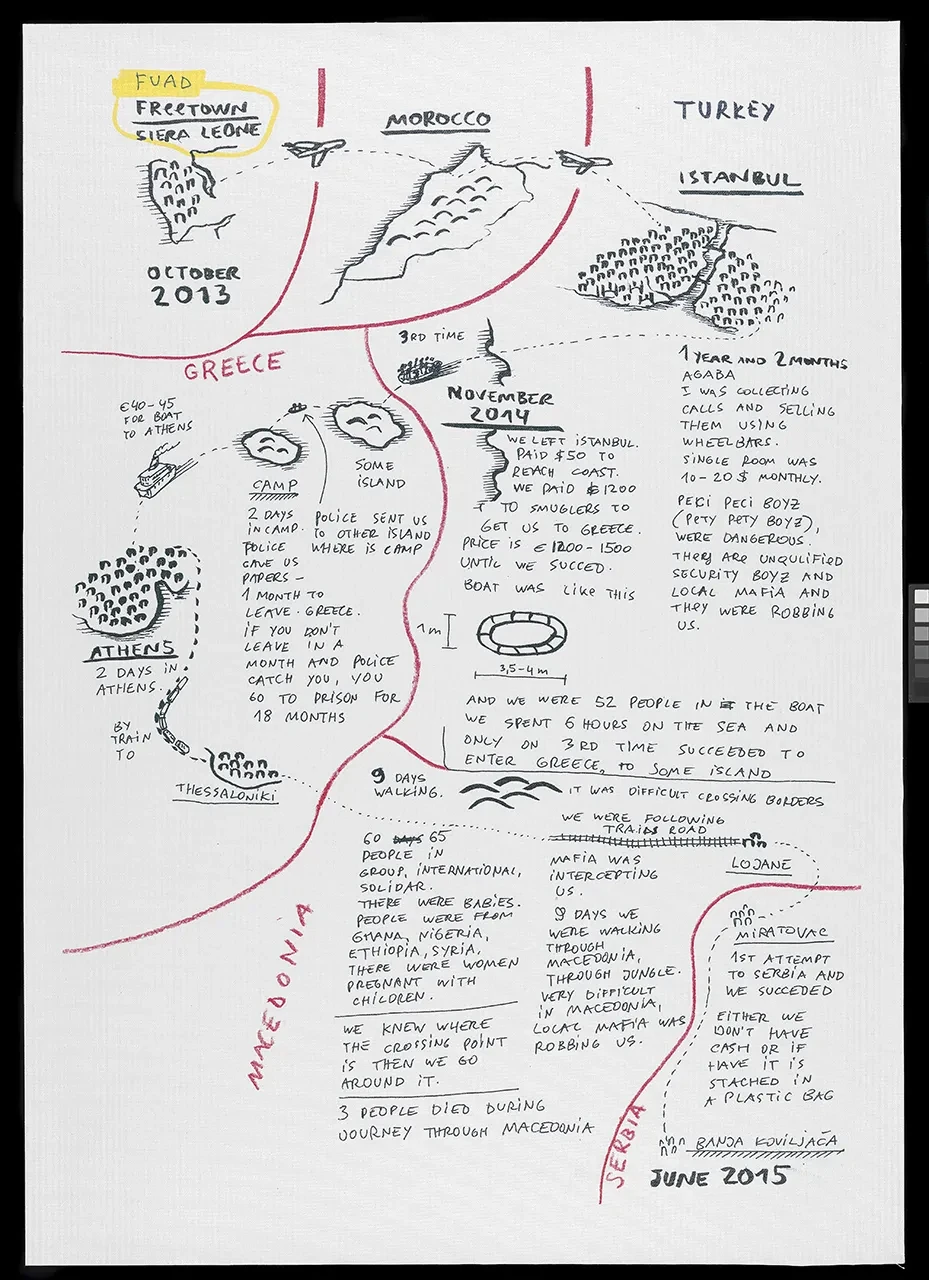 FUAD
FREETOWN
SIERA LEONE
OCTOBER
2013
MOROCCO
TURKEY
ISTANBUL
1 YEAR AND 2 MONTHS
AGABA
I WAS COLLECTING
CALLS AND SELLING
THEM USING
WHEELBARS.
SINGLE ROOM WAS
10-20$ MONTHLY.
PECI PECI BOYZ
(PETY PETY BOYZ),
WERE DANGEROUS.
THEY ARE UNQULIFIED
SECURITY BOYZ AND
LOCAL MAFIA AND
THEY WERE ROBBING
US.
3RD TIME
NOVEMBER
2014
WE LEFT ISTANBUL.
PAID $50 TO
REACH COAST.
WE PAID € 1200
TO SMUGLERS TO
GET US TO GREECE.
PRICE IS € 1200-1500
UNTIL WE SUCCED.
BOAT WAS LIKE THIS
1 m
3,5-4 m
AND WE WERE 52 PEOPLE IN THE BOAT
WE SPENT 6 HOURS ON THE SEA AND
ONLY ON 3RD TIME SUCCEEDED TO
ENTER GREECE, TO SOME ISLAND
GREECE
SOME
ISLAND
POLICE SENT US
TO OTHER ISLAND
WHERE IS CAMP
CAMP
2 DAYS
IN CAMP.
POLICE
GAVE US
PAPERS -
1 MONTH TO
LEAVE. GREECE.
IF YOU DON'T
LEAVE IN A
MONTH AND POLICE
CATCH YOU, YOU
GO TO PRISON FOR
18 MONTHS
€40-45
FOR BOAT
TO ATHENS
ATHENS
2 DAYS IN
ATHENS.
BY
TRAIN
TO
THESSALONIKI
9 DAYS
WALKING.
IT WAS DIFFICULT CROSSING BORDERS
WE WERE FOLLOWING
TRAINS ROAD
LOJANE
MACEDONIA
60 DAYS 65
PEOPLE IN
GROUP, INTERNATIONAL,
SOLIDAR.
THERE WERE BABIES.
PEOPLE WERE FROM
GHANA, NIGERIA,
ETHIOPIA, SYRIA,
THERE WERE WOMEN
PREGNANT WITH
CHILDREN.
WE KNEW WHERE
THE CROSSING POINT
IS THEN WE GO
AROUND IT.
3 PEOPLE DIED DURING
JOURNEY THROUGH MACEDONIA
MAFIA WAS
INTERCEPTING
US.
9 DAYS WE
WERE WALKING
THROUGH
MACEDONIA,
THROUGH JUNGLE.
VERY DIFFICULT
IN MACEDONIA,
LOCAL MAFIA WAS
ROBBING US.
SERBIA
MIRATOVAC
1ST ATTEMPT
TO SERBIA AND
WE SUCCEDED
EITHER WE
DON'T HAVE
CASH OR IF
HAVE IT IS
STACHED IN
A PLASTIC BAG
BANJA KOVILJAČA
JUNE 2015